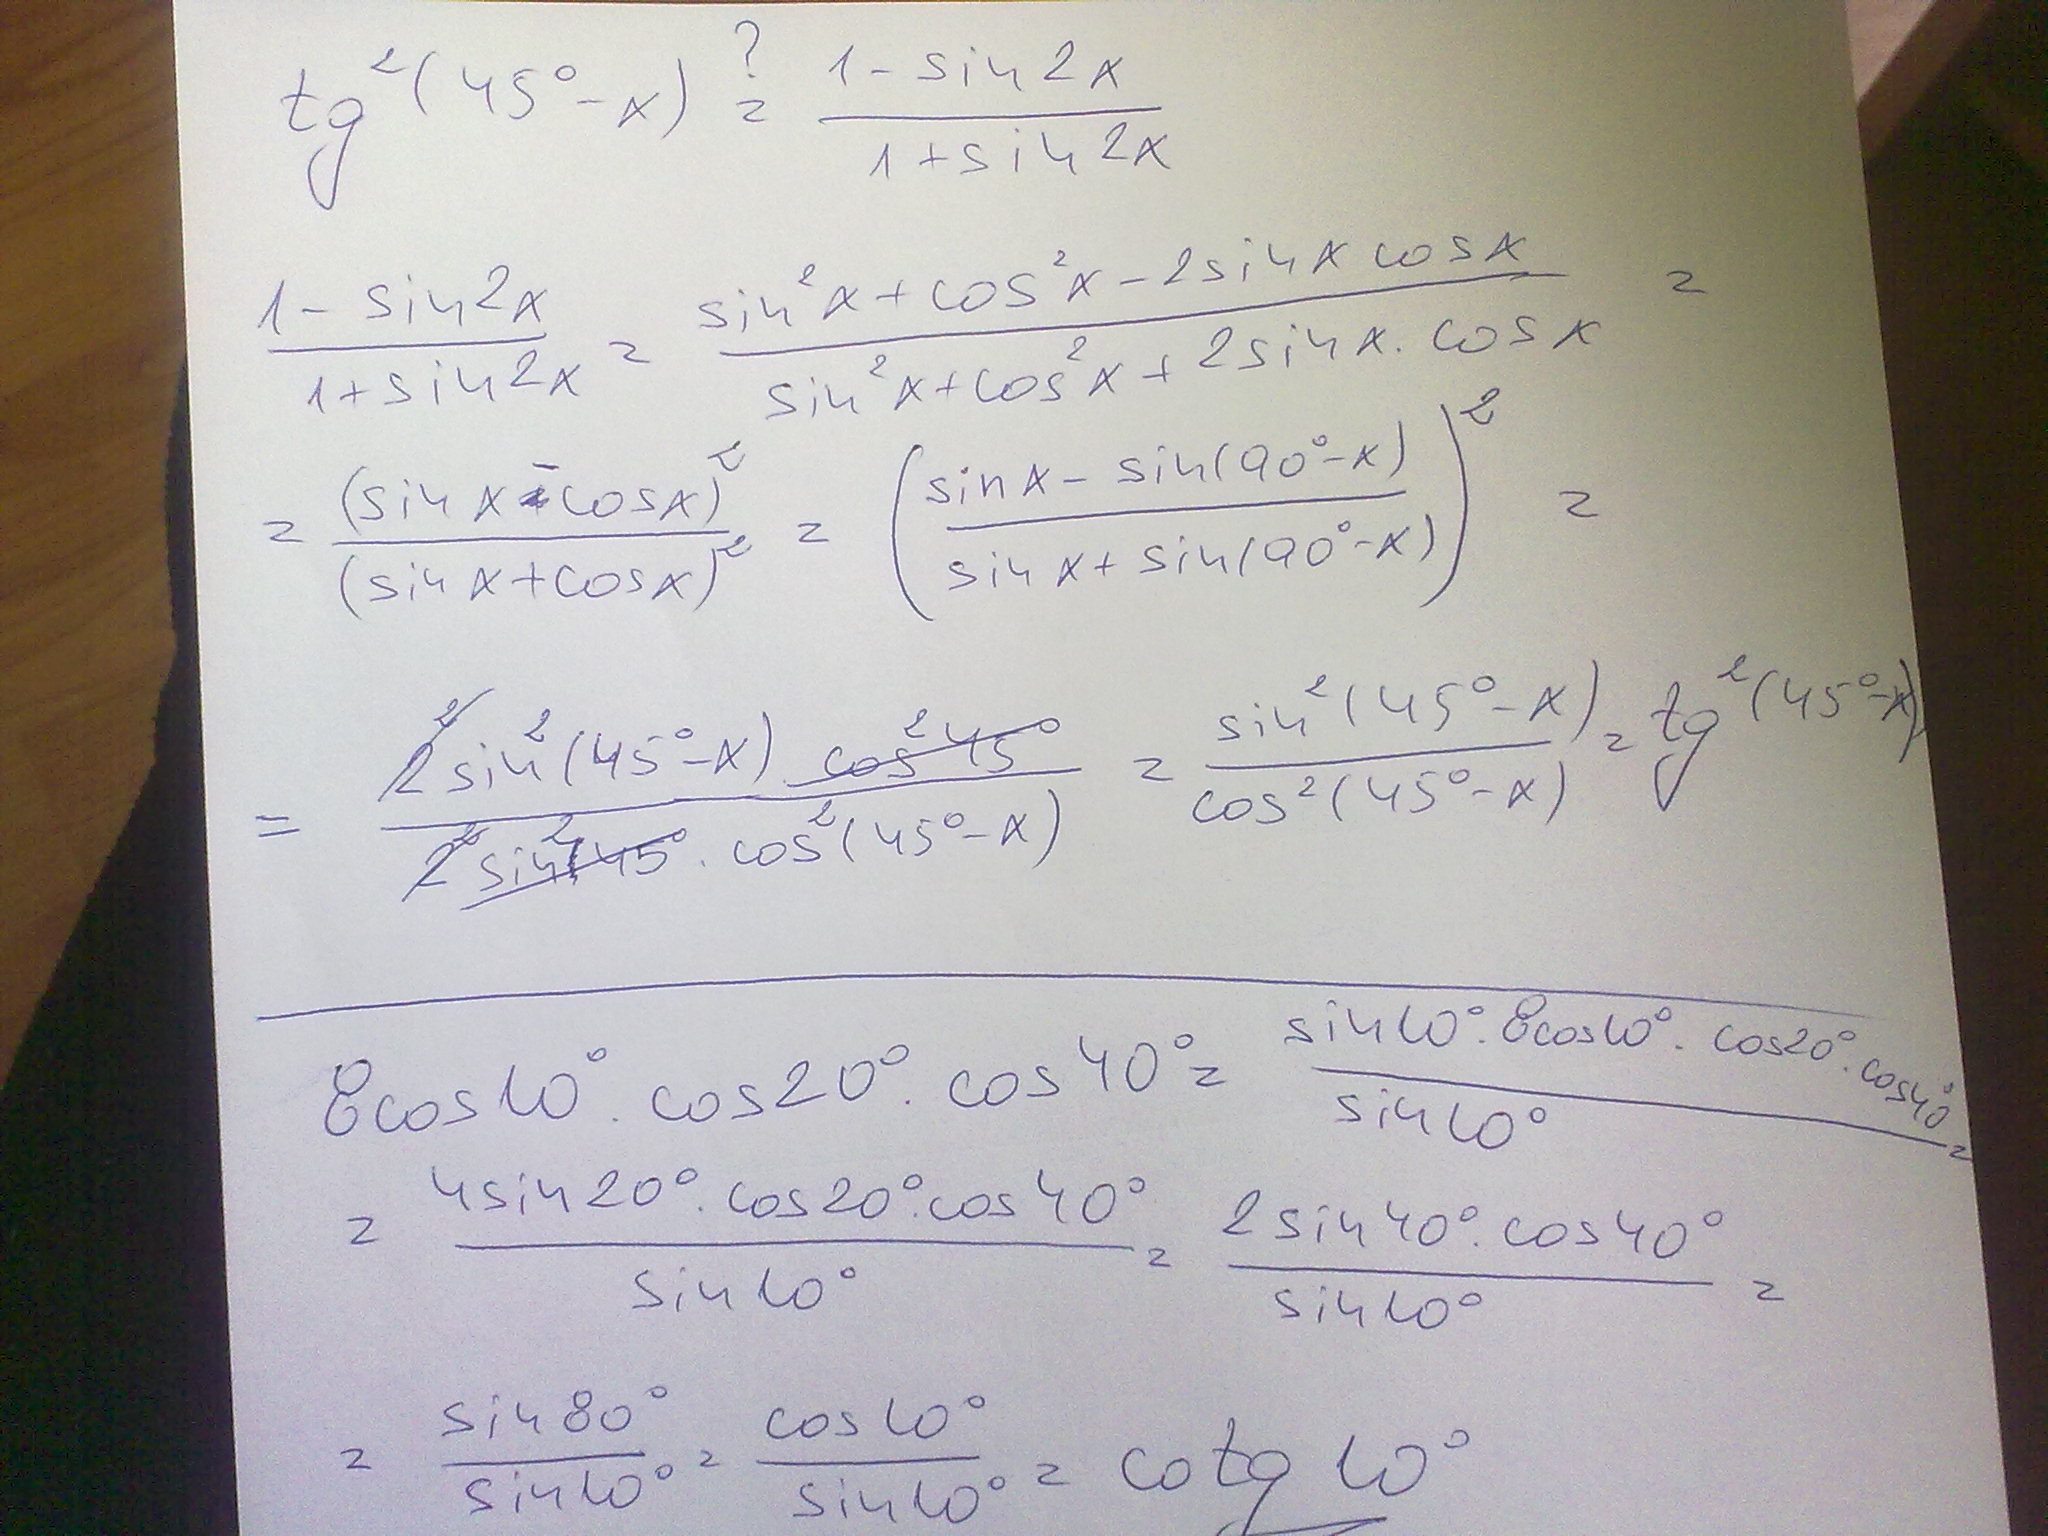 tg²(45°-x) ?= (1-sin2x)/(1+sin2x)
(1-sin2x)/(1+sin2x) = (sin²x+cos²x-2sinx cosx)/(sin²x+cos²x+2sinx.cosx) =
= (sinx-cosx)²/(sinx+cosx)² = ((sinx-sin(90°-x))/(sinx+sin(90°-x)))² =
= (2²sin²(45°-x).cos²45°)/(2²sin²45°.cos²(45°-x)) = sin²(45°-x)/cos²(45°-x) = tg²(45°-x)
8cos10°.cos20°.cos40° = (sin10°.8cos10°.cos20°.cos40°)/sin10° =
= (4sin20°.cos20°.cos40°)/sin10° = (2sin40°.cos40°)/sin10° =
= sin80°/sin10° = cos10°/sin10° = cotg10°